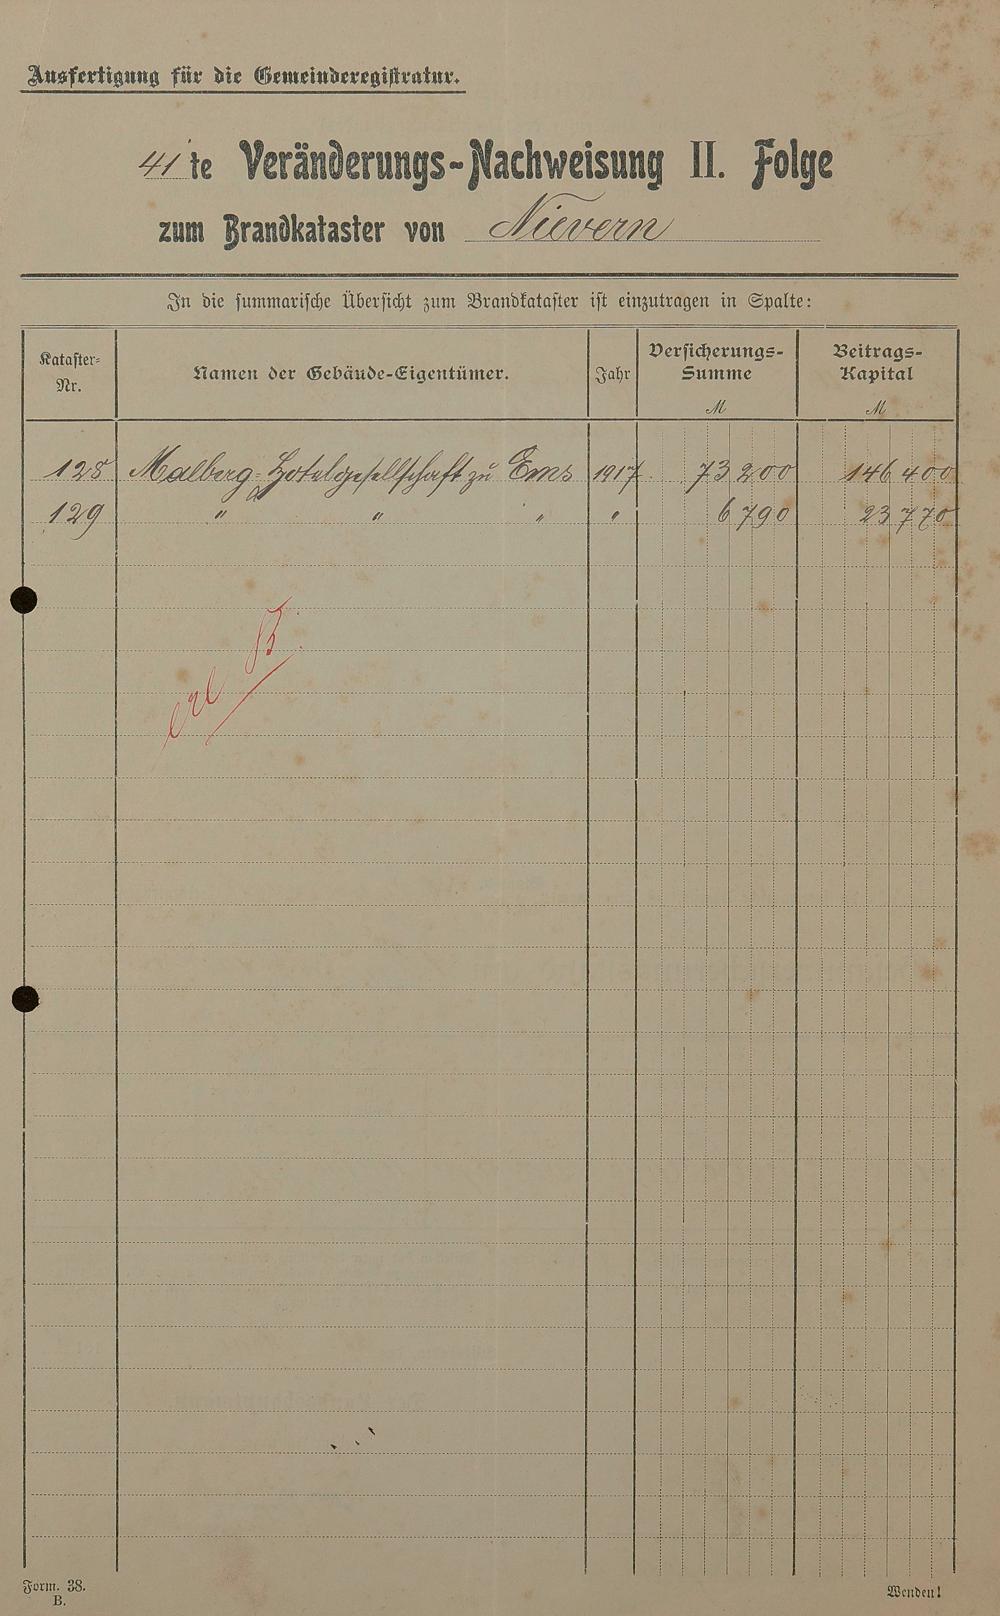 Ausfertigung für die Gemeinderegistratur.
41te Veränderungs-Nachweisung II. Folge
zum Brandkataster von Nievern
In die summarische Übersicht zum Brandkataster ist einzutragen in Spalte:
Kataster-Nr. Namen der Gebäude-Eigentümer. Jahr Versicherungs-Summe M Beitrags-Kapital M
128 Malberg-Hotelgesellschaft zu Ems 1917. 73 200 146 400
129 " " " " 6 790 23 770
erl B.
Form. 38.
B.
Wenden!